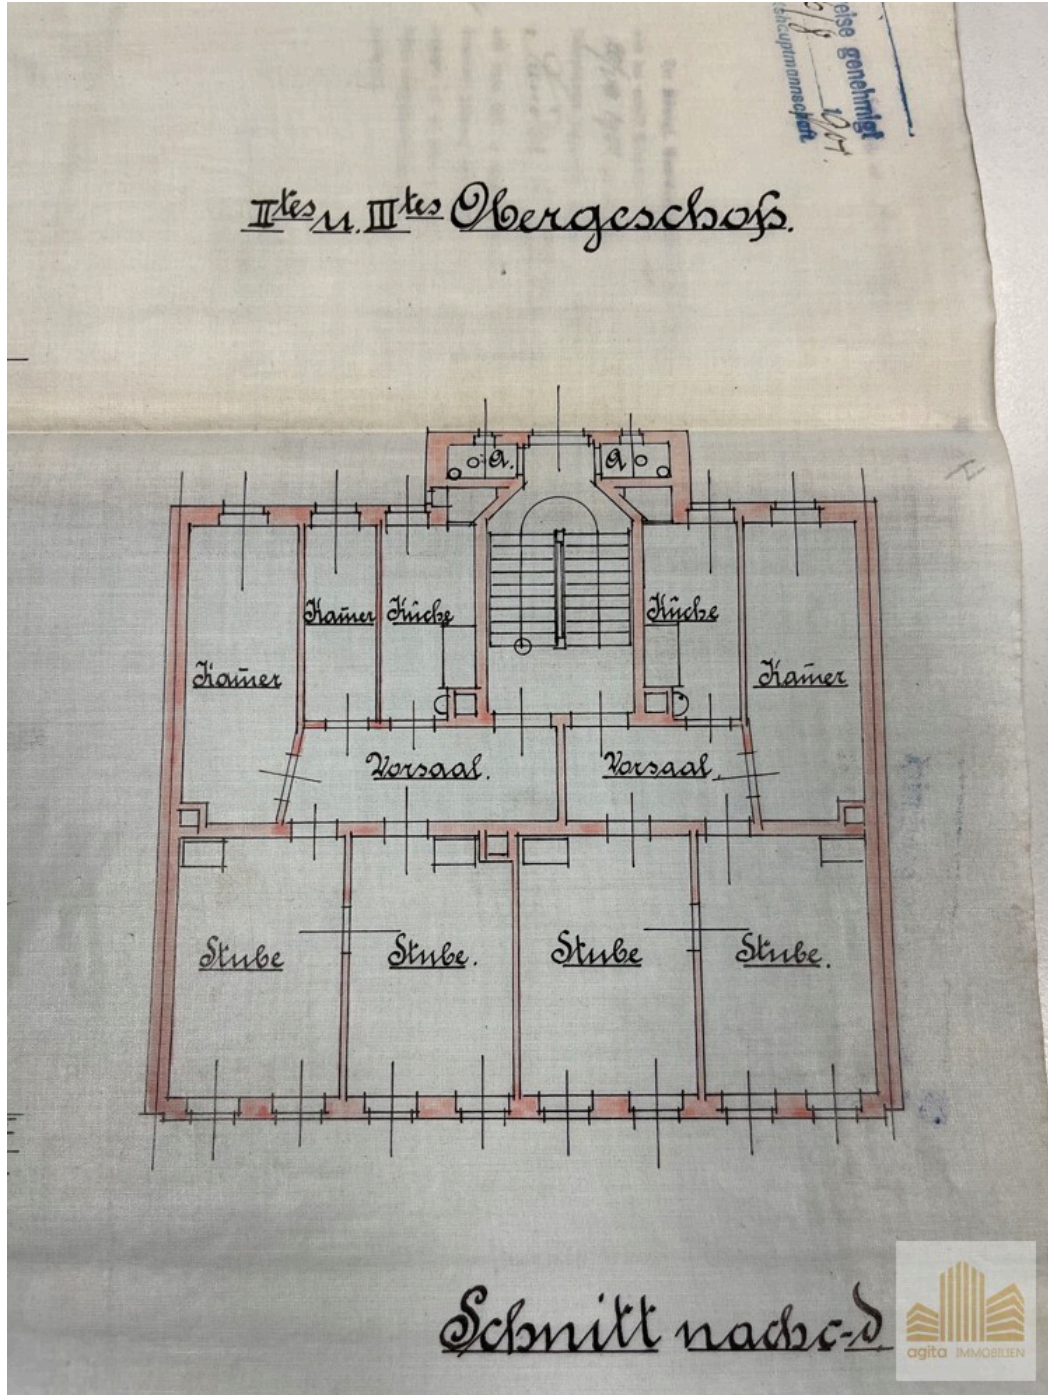 eise genehmigt
shauptmannschaft
IItes u. IIItes Obergeschoß.
a. a
Kam̅er Küche Küche
Kam̅er Kam̅er
Vorsaal. Vorsaal.
Stube Stube. Stube Stube.
Schnitt nach c-d
agita IMMOBILIEN